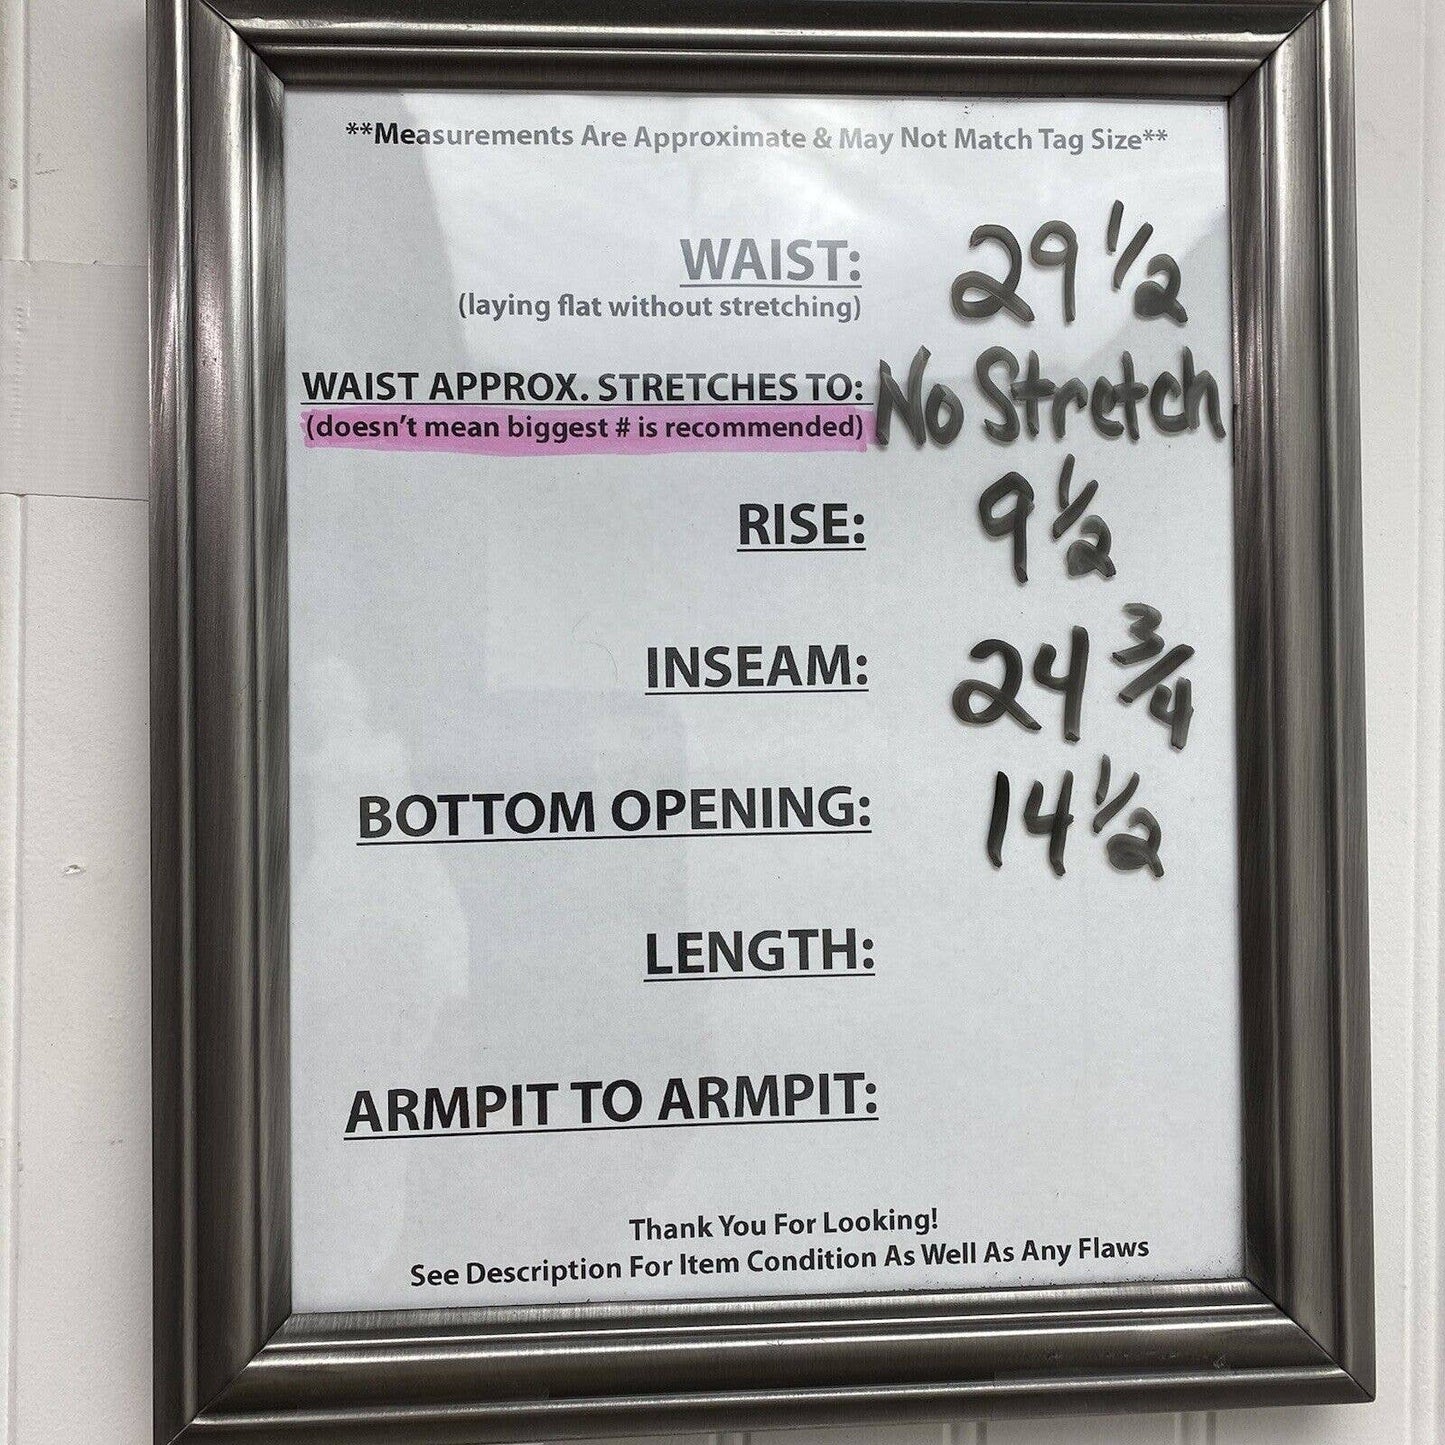 **Measurements Are Approximate & May Not Match Tag Size**
WAIST: 29 1/2
(laying flat without stretching)
WAIST APPROX. STRETCHES TO: No Stretch
(doesn't mean biggest # is recommended)
RISE: 9 1/2
INSEAM: 24 3/4
BOTTOM OPENING: 14 1/2
LENGTH:
ARMPIT TO ARMPIT:
Thank You For Looking!
See Description For Item Condition As Well As Any Flaws